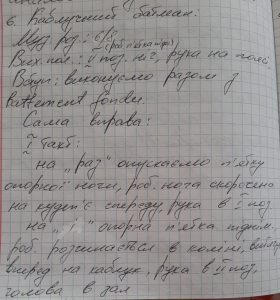 6. Каблучний батман:
Муз. роз.: 6/8
(роб. п'ятка
Вих. пол.: II поз. ніг, рука на поясі
Вступ: виконуємо разом з
battement fondu.
Сама вправа:
I такт:
на „раз" опускаємо п'ятку
опорної ноги, роб. нога скорочена
на куде-п'є спереду, рука в I поз
на опорна п'ятка підним.
роб. розгинається в коліні,
вперед на каблук, рука в II поз,
голова в зал